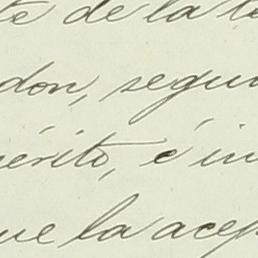 te de la te
don, segui
érito, é in
ue la acep